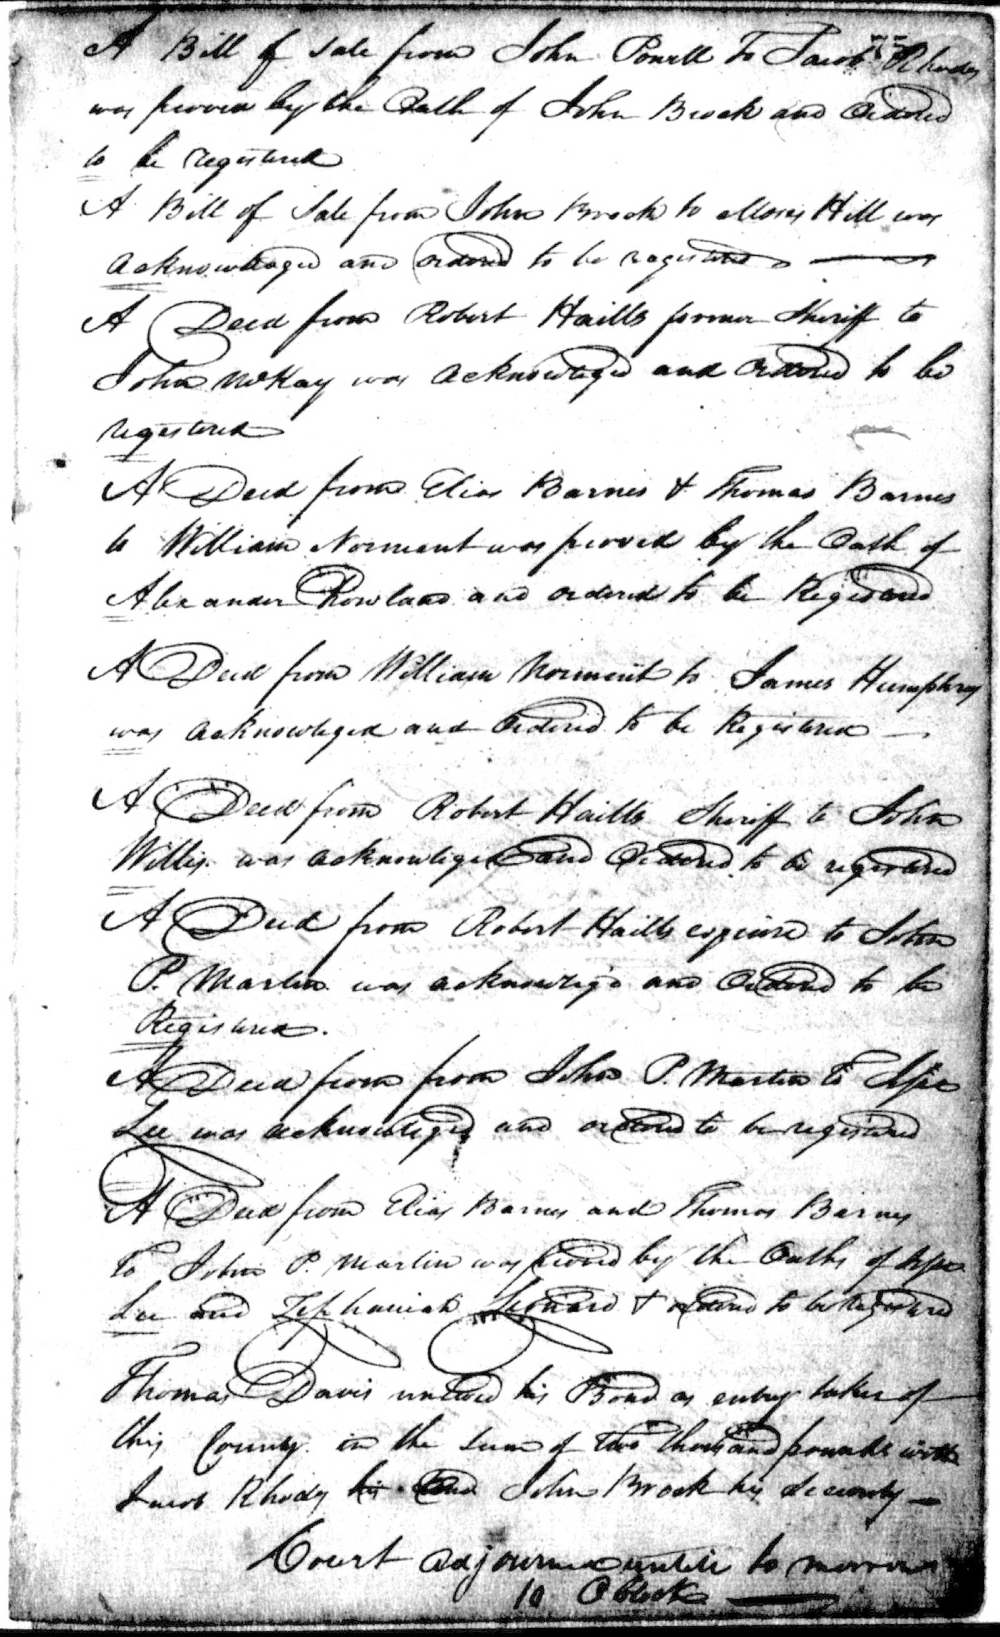 A Bill of Sale from John Powell To Jacob Rhodes
was proved by the Oath of John Brock and Ordered
to be registered
A Bill of Sale from John Brock to Moses Hill was
acknowledged and ordered to be registered
A Deed from Robert Haills former Sheriff to
John McKay was acknowleged and Ordered to be
registered
A Deed from Elias Barnes & Thomas Barnes
to William Norment was proved by the Oath of
Alexander Rowland and ordered to be Registered
A Deed from William Norment to James Humphrey
was acknowleged and Ordered to be Registered
A Deed from Robert Haills Sheriff to John
Willis was acknowleged and Ordered to be registered
A Deed from Robert Haills esquire to John
P. Martin was acknowleg'd and Ordered to be
Registered.
A Deed from from John P. Martin to
Lee was acknowleged and ordered to be registered
A Deed from Elias Barnes and Thomas Barnes
To John P. Martin was proved by the Oaths of
Lee and Zephaniah Leonard & ordered to be Registered
Thomas Davis his Bond as entry taker of
this County in the sum of two thousand pounds with
Jacob Rhodes his and John Brock his Security
Court adjourned untill to morrow
10 OClock